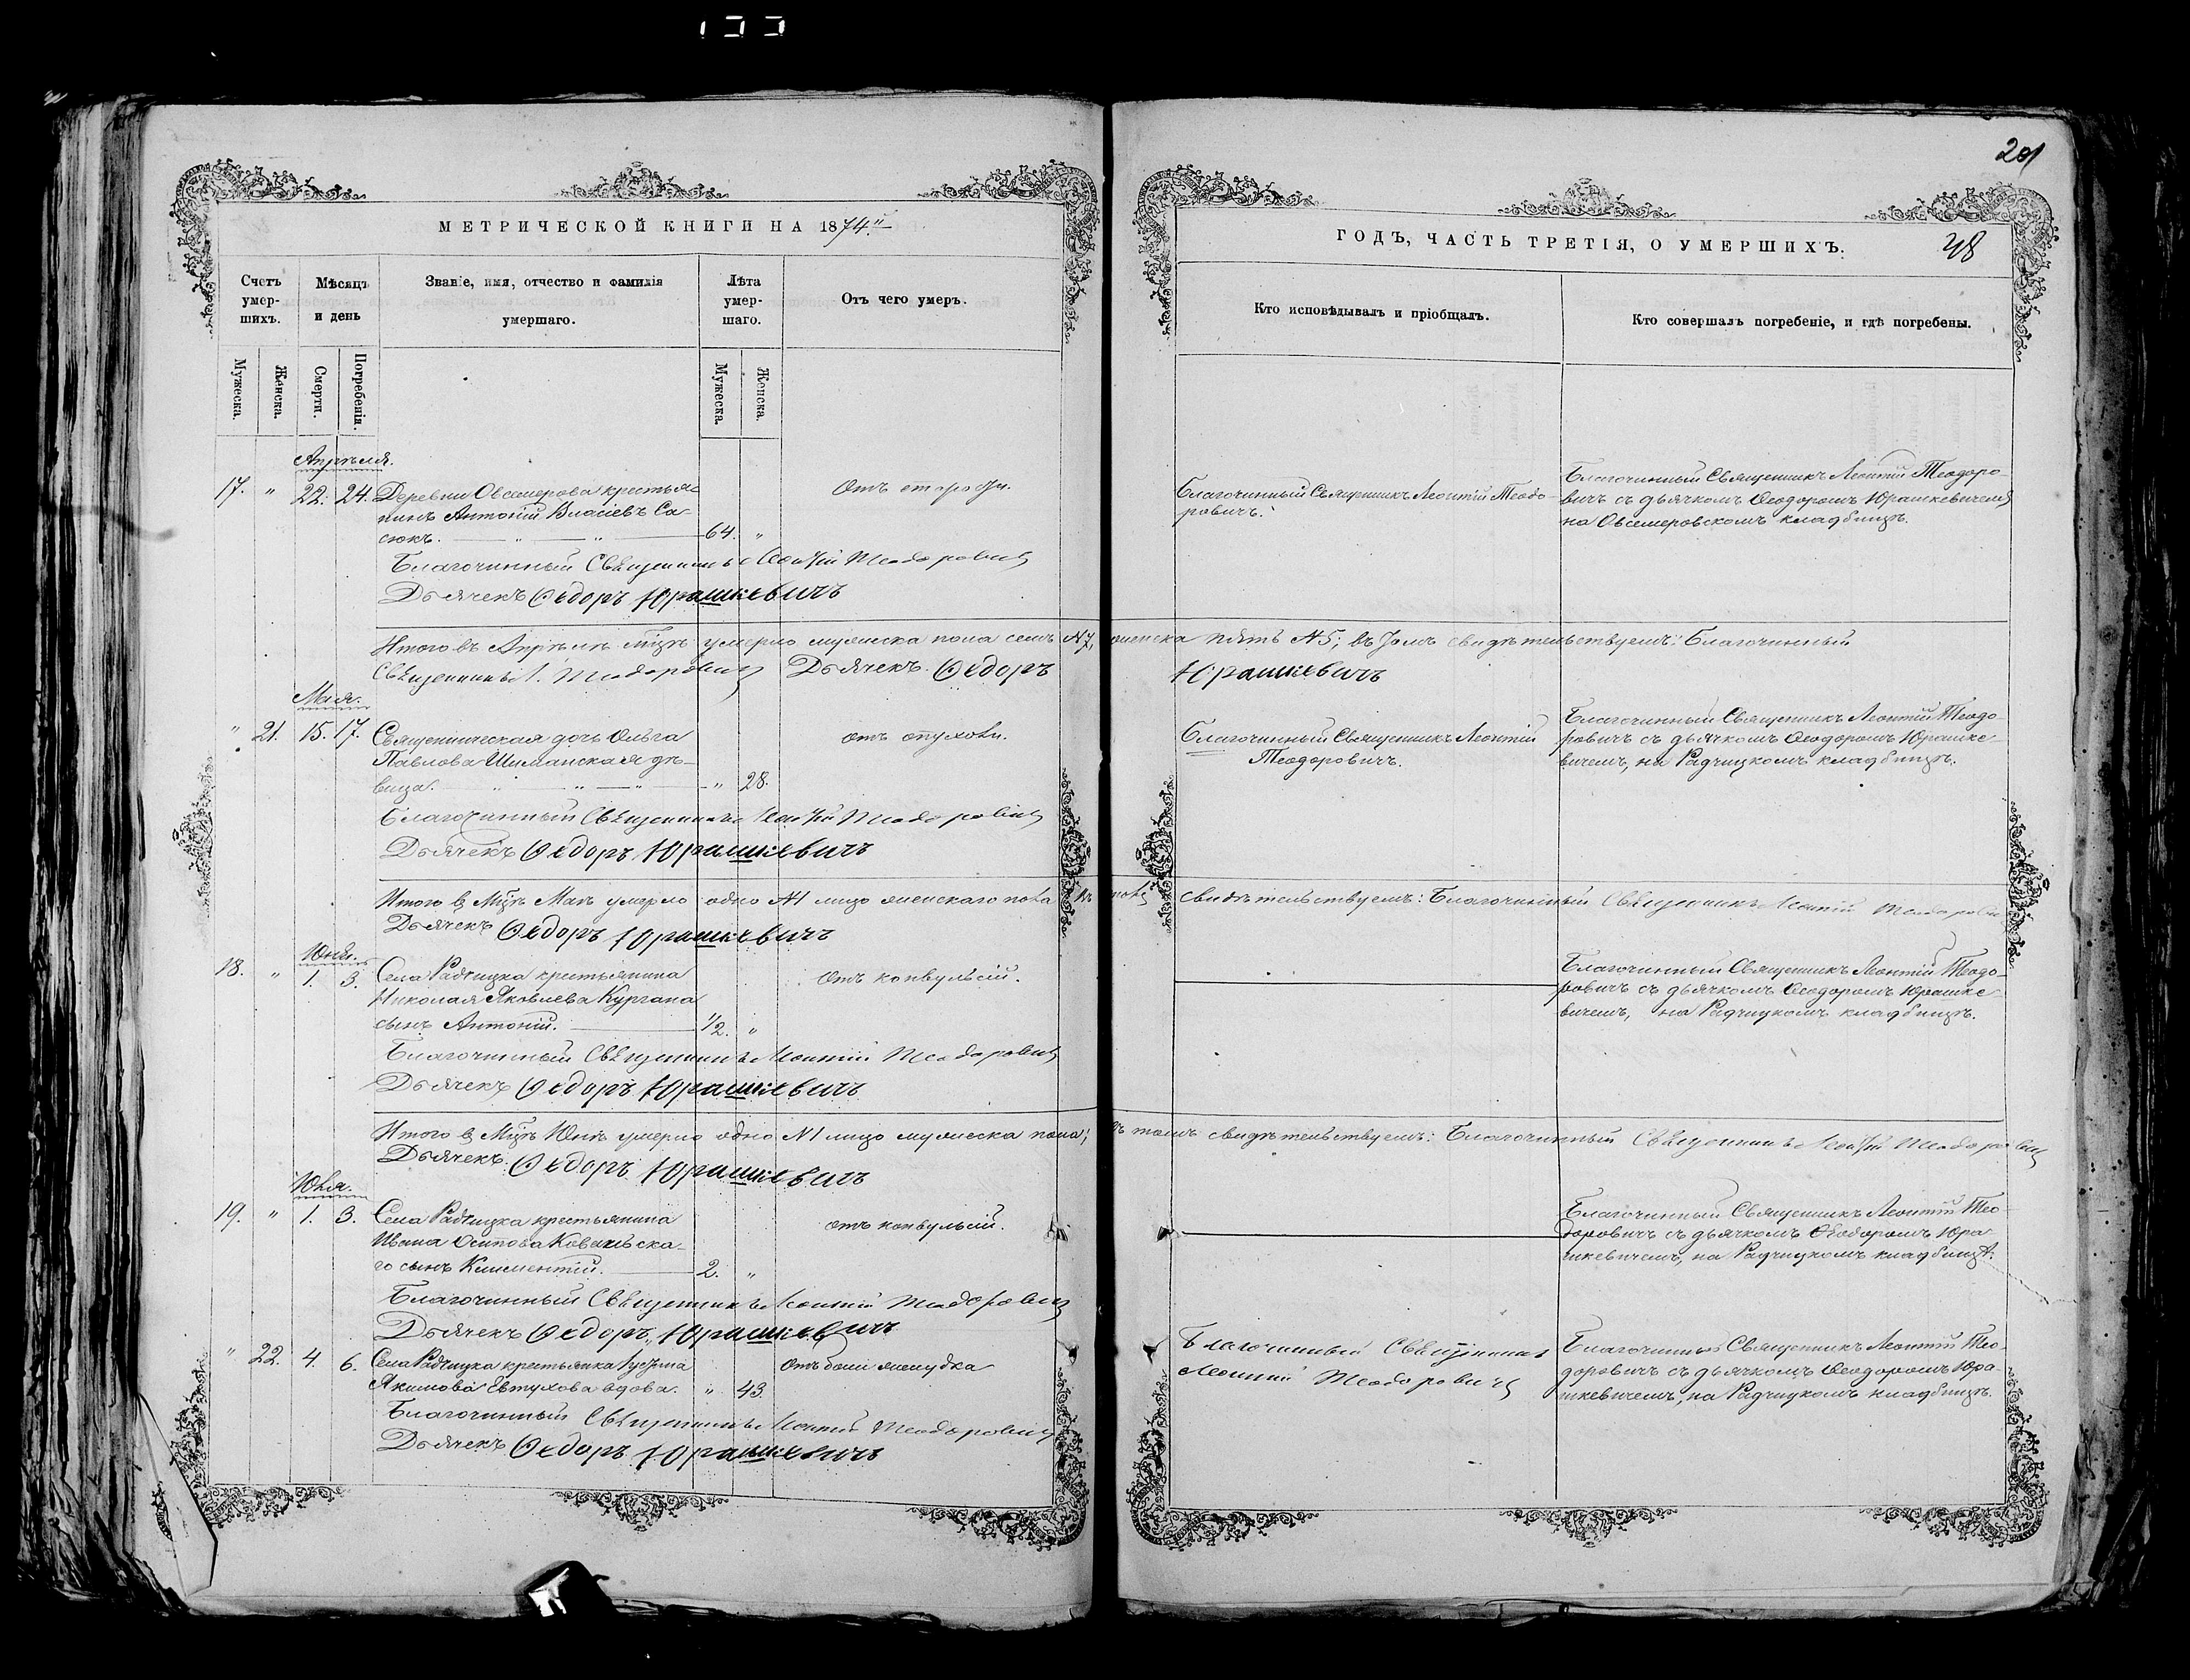 201
МЕТРИЧЕСКОЙ КНИГИ НА 1874й
ГОДЪ, ЧАСТЬ ТРЕТІЯ, О УМЕРШИХЪ.
Счетъ умер-шихъ.
Мѣсяцъ и день
Званіе, имя, отчество и фамилія умершаго.
Лѣта умер-шаго.
Отъ чего умеръ.
Кто исповѣдывалъ и пріобщалъ.
Кто совершалъ погребеніе, и гдѣ погребены.
Мужеска.
Женска.
Смерти.
Погребенія.
Мужеска.
Женска.
Апрѣля.
17. " 22. 24. Деревни Овсемерова крестья-
нинъ Антоній Власіевъ Са-
сюкъ. 64. "
Отъ старости.
Благочинный Священникъ Леонтій Теодо-
ровичъ.
Благочинный Священникъ Леонтій Теодоро-
вичъ съ дьячкомъ Ѳеодоромъ Юрашкевичемъ
на Овсемеровскомъ кладбищѣ.
Благочинный Священникъ Леонтій Теодоровичъ
Дьячекъ Ѳедоръ Юрашкевичъ
Итого въ Апрѣлѣ мцѣ умерло мужеска пола семь №7, женска пять №5; въ томъ свидѣтельствуемъ: Благочинный
Священникъ Л. Теодоровичъ Дьячекъ Ѳедоръ Юрашкевичъ
Мая.
" 21. 15. 17. Священническая дочь Ольга
Павлова Шиманская дѣ-
вица. " 28.
отъ опухоли.
Благочинный Священникъ Леонтій
Теодоровичъ.
Благочинный Священникъ Леонтій Теодо-
ровичъ съ дьячкомъ Ѳеодоромъ Юрашке-
вичемъ, на Радчицкомъ кладбищѣ.
Благочинный Священникъ Леонтій Теодоровичъ
Дьячекъ Ѳедоръ Юрашкевичъ
Итого в Мцѣ Маѣ умерло одно №1 лицо женскаго пола въ томъ свидѣтельствуемъ: Благочинный Священникъ Леонтій Теодорови
Дьячекъ Ѳедоръ Юрашкевичъ
Юня.
18. " 1. 3. Села Радчицка крестьянина
Николая Яковлева Кургана
сынъ Антоній. 1/2. "
Отъ конвульсій.
Благочинный Священникъ Леонтій Теодо-
ровичъ съ дьячкомъ Ѳеодоромъ Юрашке-
вичемъ, на Радчицкомъ кладбищѣ.
Благочинный Священникъ Леонтій Теодоровичъ
Дьячекъ Ѳедоръ Юрашкевичъ
Итого в Мцѣ Юнѣ умерло одно №1 лицо мужеска пола; въ томъ свидѣтельствуемъ: Благочинный Священникъ Леонтій Теодоровичъ
Дьячекъ Ѳедоръ Юрашкевичъ
Юля.
19. " 1. 3. Села Радчицка крестьянина
Ивана Осипова Ковальска-
го сынъ Климентій. 2. "
отъ конвульсій.
Благочинный Священникъ Леонтій Тео-
доровичъ съ дьячкомъ Ѳеодоромъ Юра-
шкевичемъ, на Радчицкомъ кладбищѣ.
Благочинный Священникъ Леонтій Теодоровичъ
Дьячекъ Ѳедоръ Юрашкевичъ
" 22. 4. 6. Села Радчицка крестьянка Іустина
Якимова Евтухова вдова. " 43.
Отъ боли желудка
Благочинный Священникъ
Леонтій Теодоровичъ
Благочинный Священникъ Леонтій Тео-
доровичъ съ дьячкомъ Ѳеодоромъ Юра-
шкевичемъ, на Радчицкомъ кладбищѣ.
Благочинный Священникъ Леонтій Теодоровичъ
Дьячекъ Ѳедоръ Юрашкевичъ